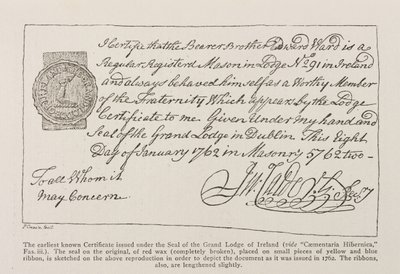 I Certify that the Bearer Brother Edward Ward is a
Regular Registerd Mason in Lodge No 91 in Ireland
and always behaved himself as a Worthy Member
of the Fraternity Which appears by the Lodge
Certificate to me. Given Under My hand and
Seal of the Grand Lodge in Dublin This Eight
Day of January 1762 in Masonry 5762 two -
To all Whom it
May Concern
The earliest known Certificate issued under the Seal of the Grand Lodge of Ireland (vide "Cementaria Hibernica,"
Fas. iii.). The seal on the original, of red wax (completely broken), placed on small pieces of yellow and blue
ribbon, is sketched on the above reproduction in order to depict the document as it was issued in 1762. The ribbons,
also, are lengthened slightly.